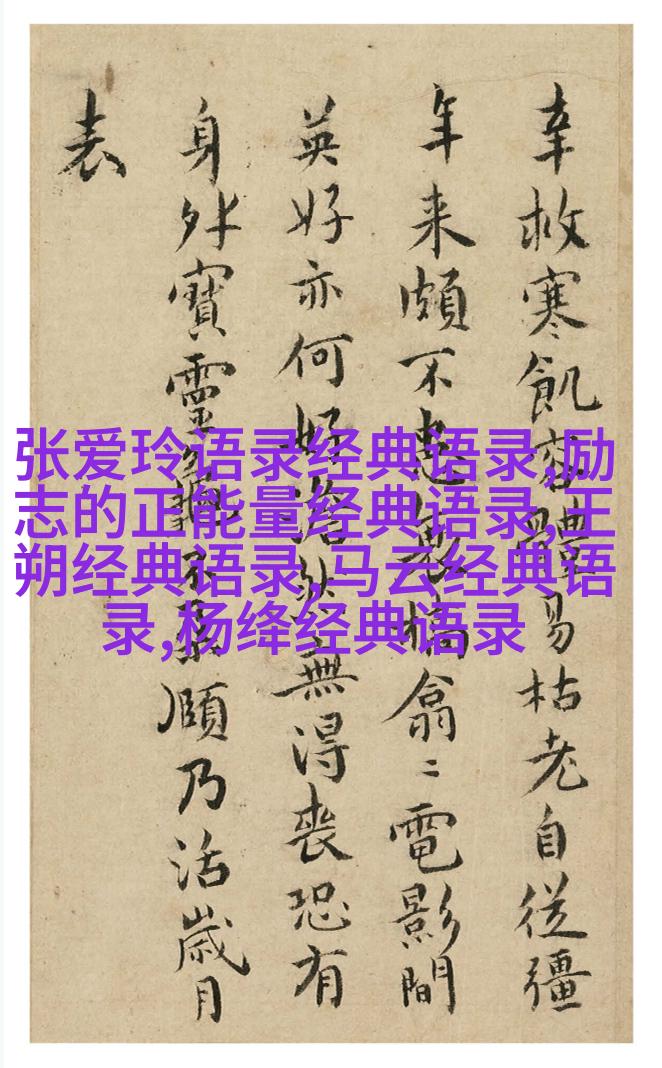 张爱玲语录经典语录,励
志的正能量经典语录,王
朔经典语录,马云经典语
录,杨绛经典语录
幸救寒飢體易枯老自從彊
年来頗不槁翕電影間
英好亦何好澹然無得喪恐有
身外寶靈龜不願乃活歲月
表